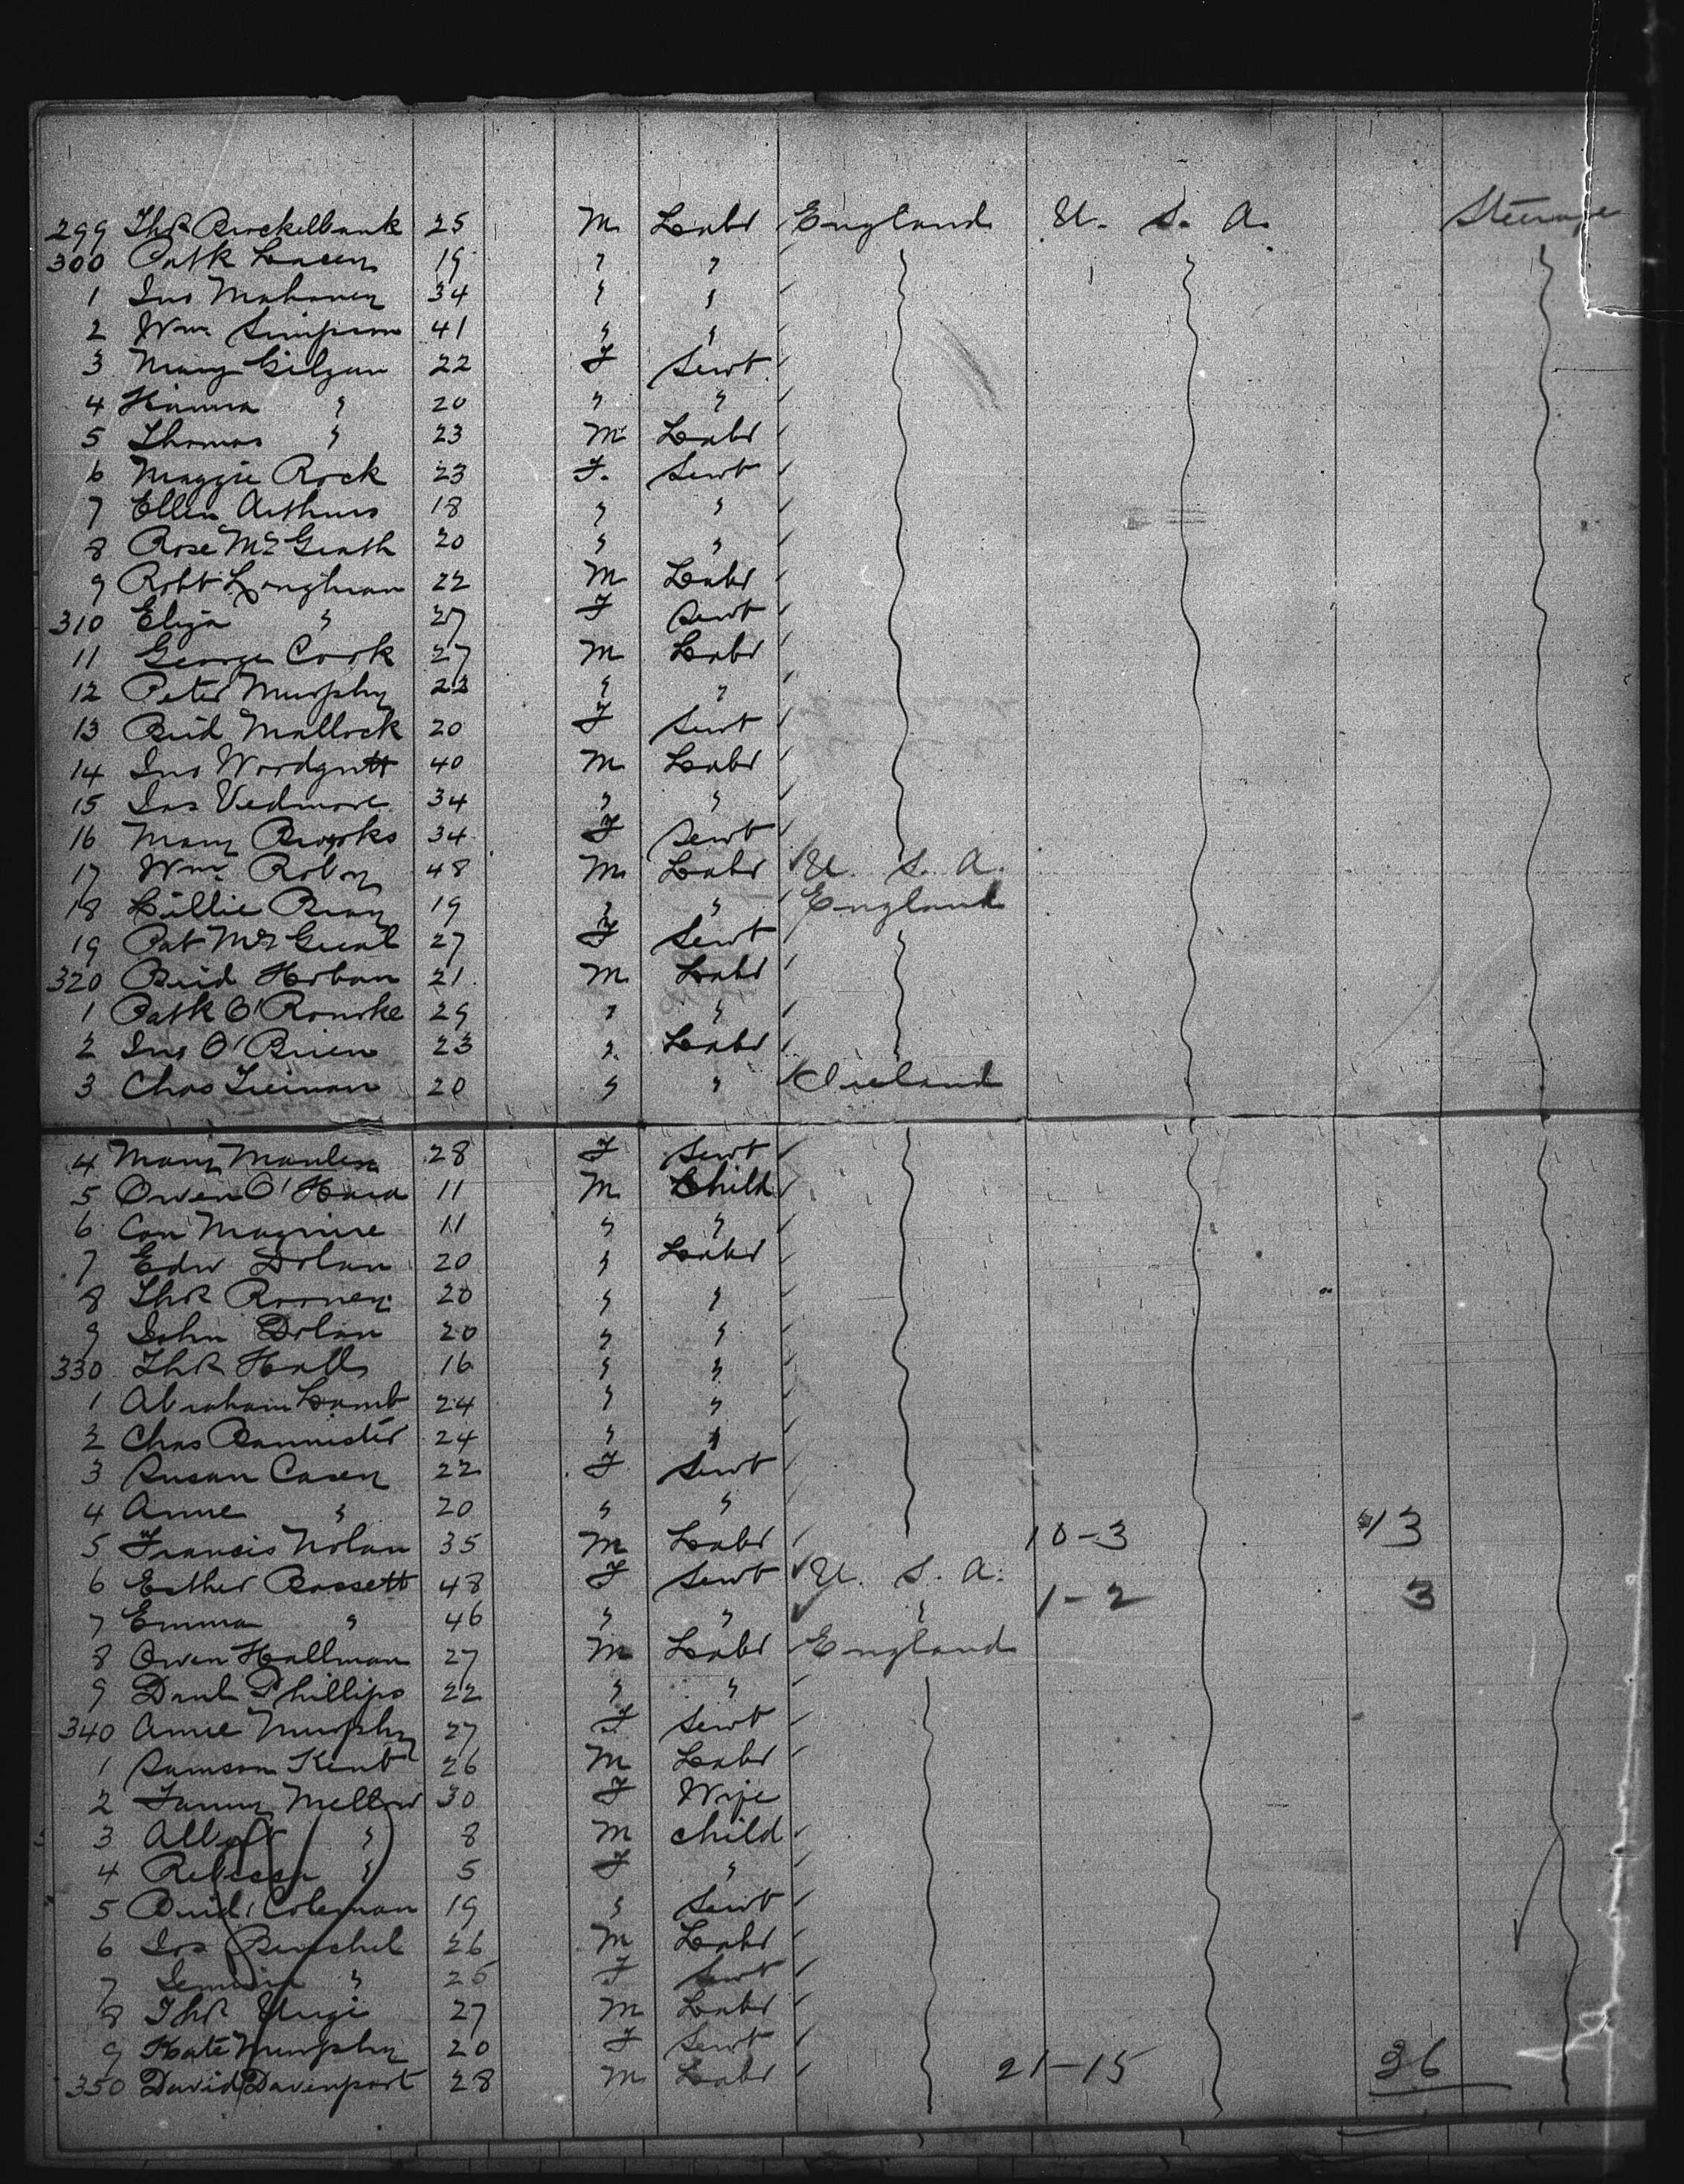 299 Thos Brockelbank 25 M Labr England U. S. A. Steerage
300 Patk Casey 19 " "
1 Jno Mahoney 34 " "
2 Wm Simpson 41 " "
3 Mary Gilgan 22 F Servt
4 Hanna " 20 " "
5 Thomas " 23 M Labr
6 Maggie Rock 23 F. Servt
7 Ellen Arthurs 18 " "
8 Rose McGrath 20 " "
9 Robt Longhran 22 M Labr
310 Eliza " 27 F Servt
11 George Cook 27 M Labr
12 Peter Murphy 23 " "
13 Brid Mallock 20 F Servt
14 Jno 40 M Labr
15 Jas Vedmore 34 " "
16 Mary Brooks 34 F Servt
17 Wm 48 M Labr U. S. A.
18 Lillie Bray 19 " " England
19 Pat 27 F Servt
320 Brid Hoban 21 M Labr
1 Patk O'Rourke 29 " "
2 Jno O'Brien 23 " Labr
3 Chas 20 " " Ireland
4 Mary 28 F Servt
5 Owen O'Hara 11 M Child
6 Con Maguire 11 " "
7 Edw Dolan 20 " Labr
8 Thos Rooney 20 " "
9 John Dolan 20 " "
330 Thos Halls 16 " "
1 Abraham Lamb 24 " "
2 Chas Bannister 24 " "
3 Susan Casey 22 F Servt
4 Anne " 20 " "
5 Francis Nolan 35 M Labr 10-3 13
6 Esther Bassett 48 F Servt U. S. A.
7 Emma " 46 " " " 1-2 3
8 Owen Hallman 27 M Labr England
9 Danl Phillips 22 " "
340 Annie Murphy 27 F Servt
1 Samson Kent 26 M Labr
2 Fanny Mellow 30 F Wife
3 Albert " 8 M child
4 Rebecca " 5 F "
5 Brid Coleman 19 " Servt
6 Jos 26 M Labr
7 " 25 F Servt
8 Thos 27 M Labr
9 Kate Murphy 20 F Servt
350 David Davenport 28 M Labr 21-15 36